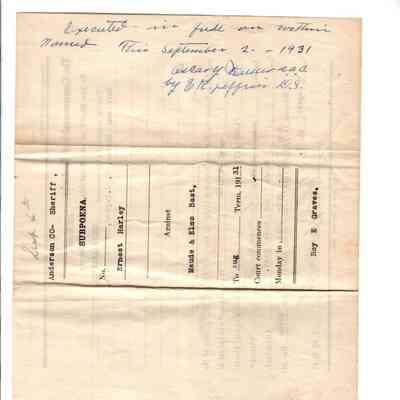 Executed in full on within
Named This September 2 - 1931
Oscar
by E. R. D.S.
Anderson CO- Sheriff,
SUBPOENA.
No.
Ernest Harley
Against
Maude & Elmo Bast,
To Aug Term, 1931
Court commences
Monday in
Roy E Graves,